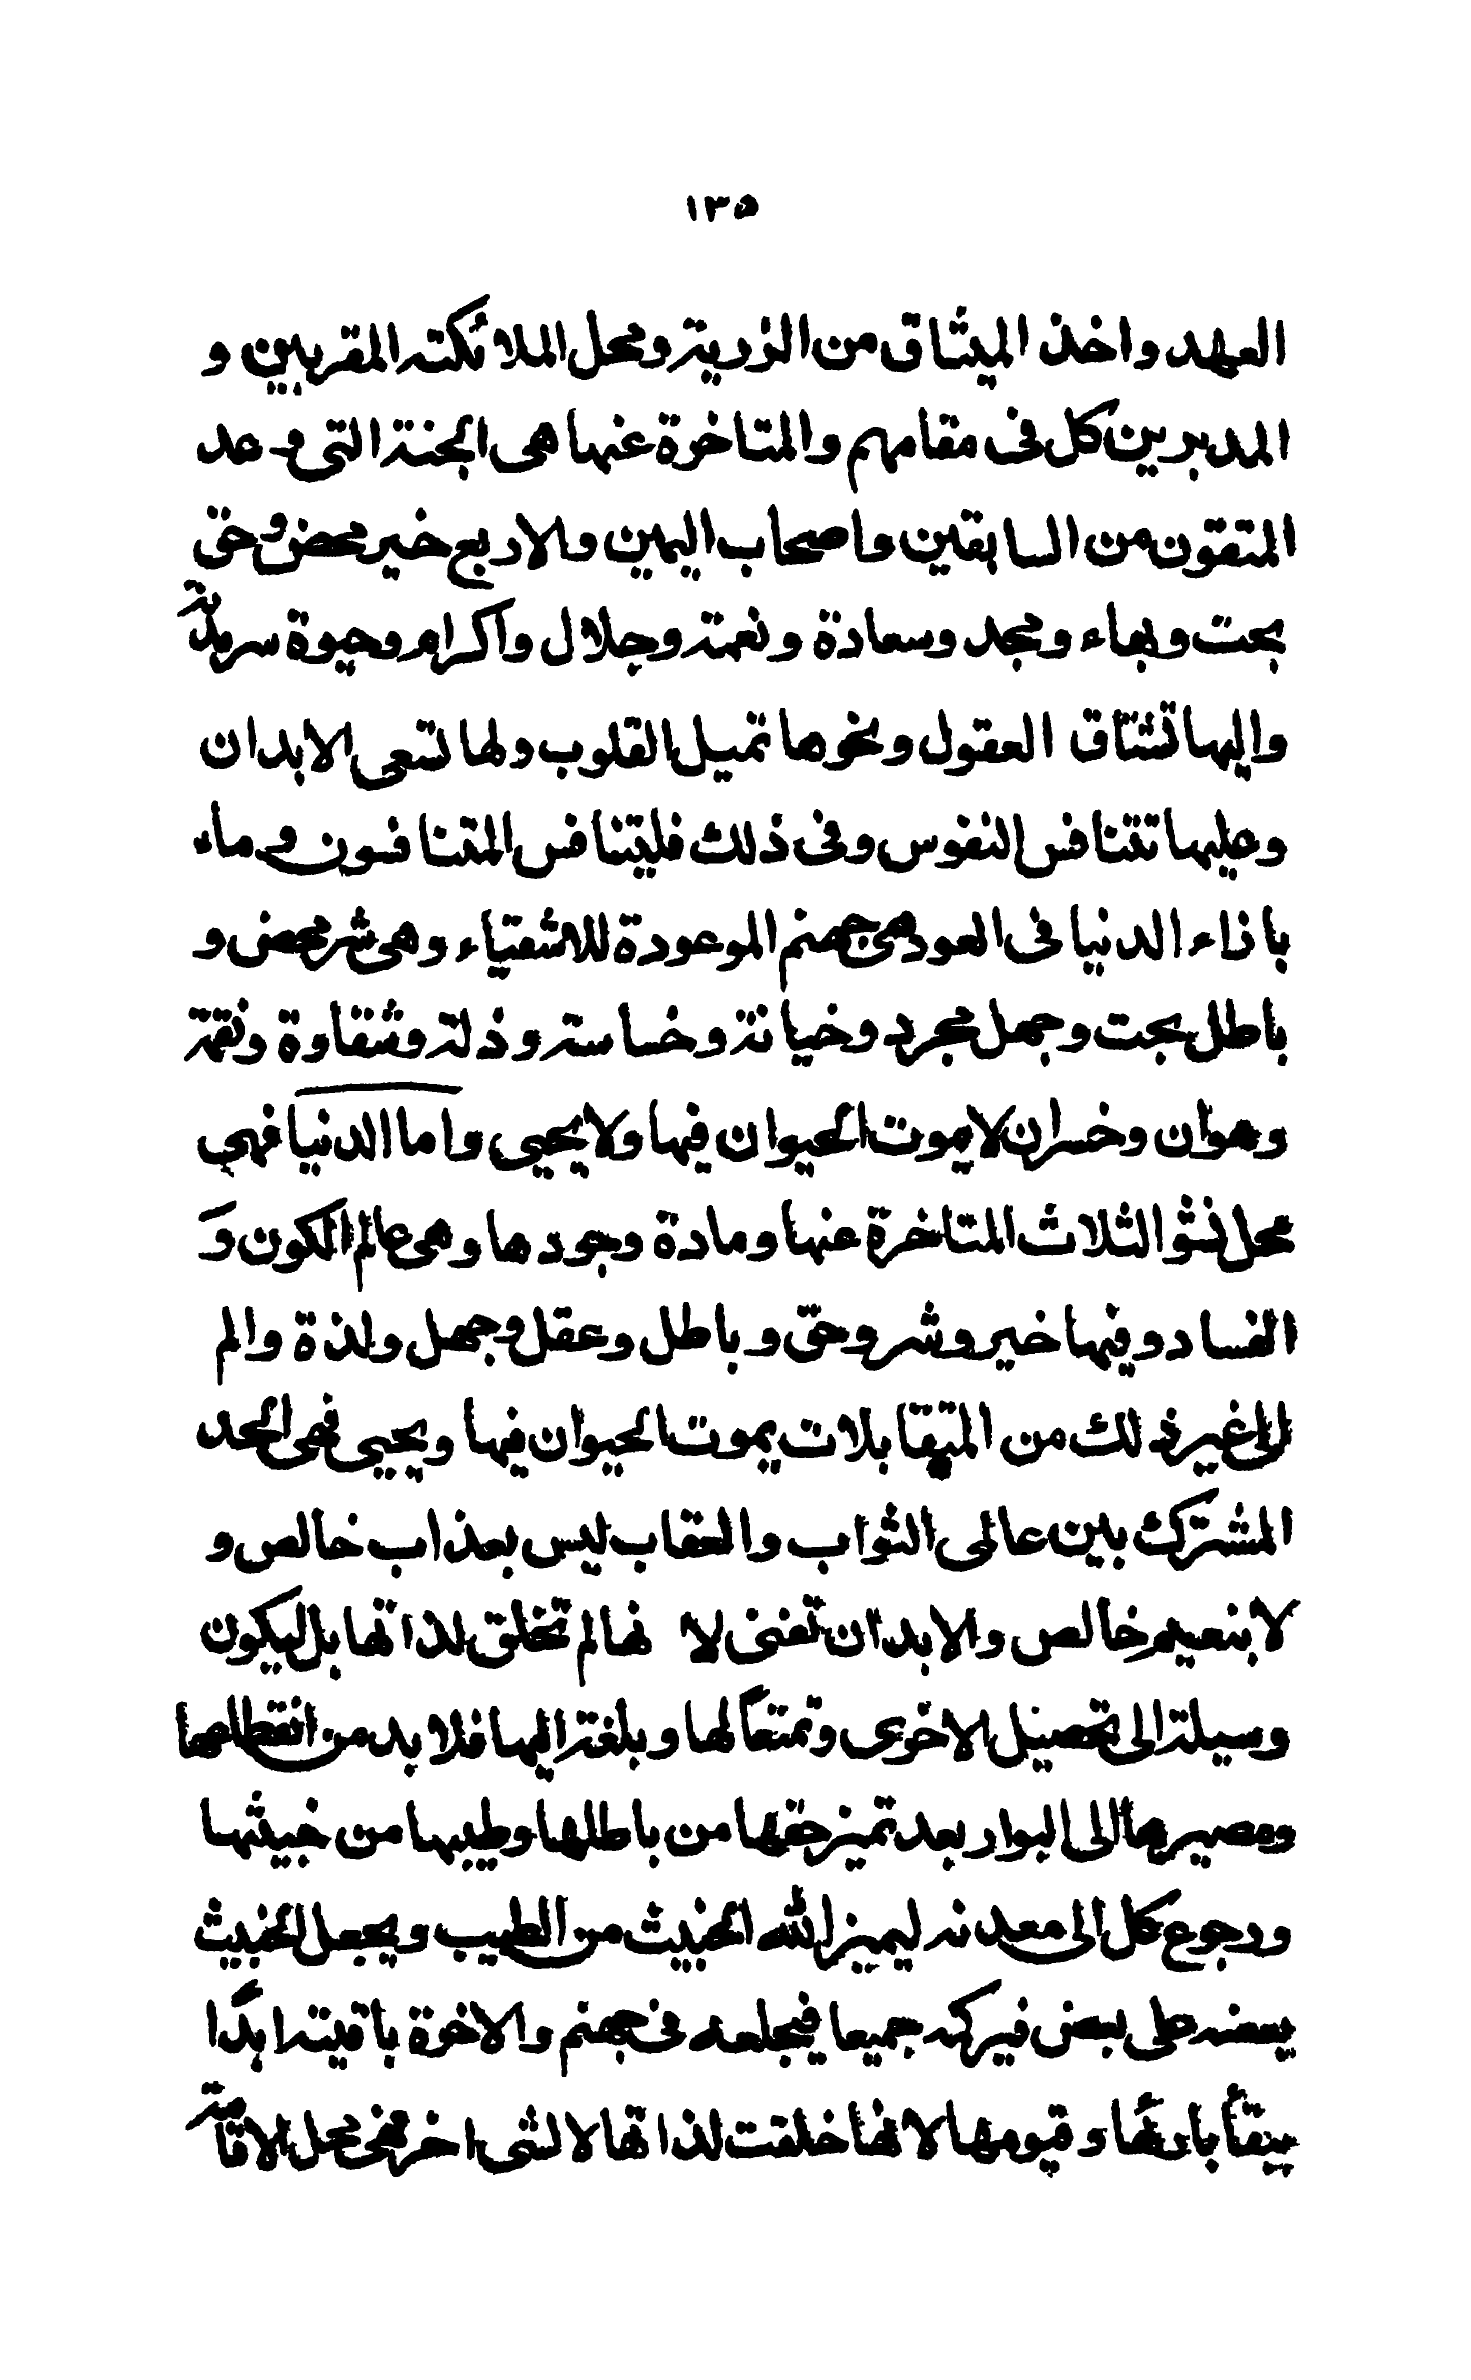 ١٣٥
العهد واخذ الميثاق من الذرية ومحل الملائكته المقربين و
المدبرين كل فى مقامهم والمتاخرة عنها هى الجنة التى وعد
المتقون من السابقين واصحاب اليمين والاربع خير محض وحق
بحت وبهاء ومجد وسعادة ونعمة وجلال واكرام وحيوة سرمدية
واليها تشتاق العقول ونحوها تميل القلوب ولها تسعى الابدان
وعليها تتنافس النفوس وفى ذلك فليتنافس المتنافسون وماء
باذاء الدنيا فى العود هى جهنم الموعودة للاشقياء وهى شر محض و
باطل بحت وجهل مجرد وخيانة وخساسة وذلة وشقاوة ونقمة
وهوان وخسران لا يموت الحيوان فيها ولا يحيى واما الدنيا فهى
محل نشؤ الثلاث المتاخرة عنها ومادة وجودها وهى عالم الكون و
الفساد وفيها خير وشر وحق وباطل وعقل وجهل ولذة والم
الى غير ذلك من المتقابلات يموت الحيوان فيها ويحيى فهى الحد
المشترك بين عالمى الثواب والعقاب ليس بعذاب خالص و
لا بنعيم خالص والابدان تفنى لا نها لم تخلق لذاتها بل ليكون
وسيلة الى تحصيل الاخرى وتمتعاً لها وبلغة اليها فلا بد من انقطاعها
ومصيرها الى البوار بعد تميز حقها من باطلها وطيبها من خبيثها
ورجوع كل الى معدنه ليميز الله الخبيث من الطيب ويجعل الخبيث
بعضه على بعض فيركمه جميعا فيجعله فى جهنم والاخرة باقية ابدًا
ببقأ بارئها وقيومها لانها خلقت لذاتها لا لشى اخر فهى محل الاقامة